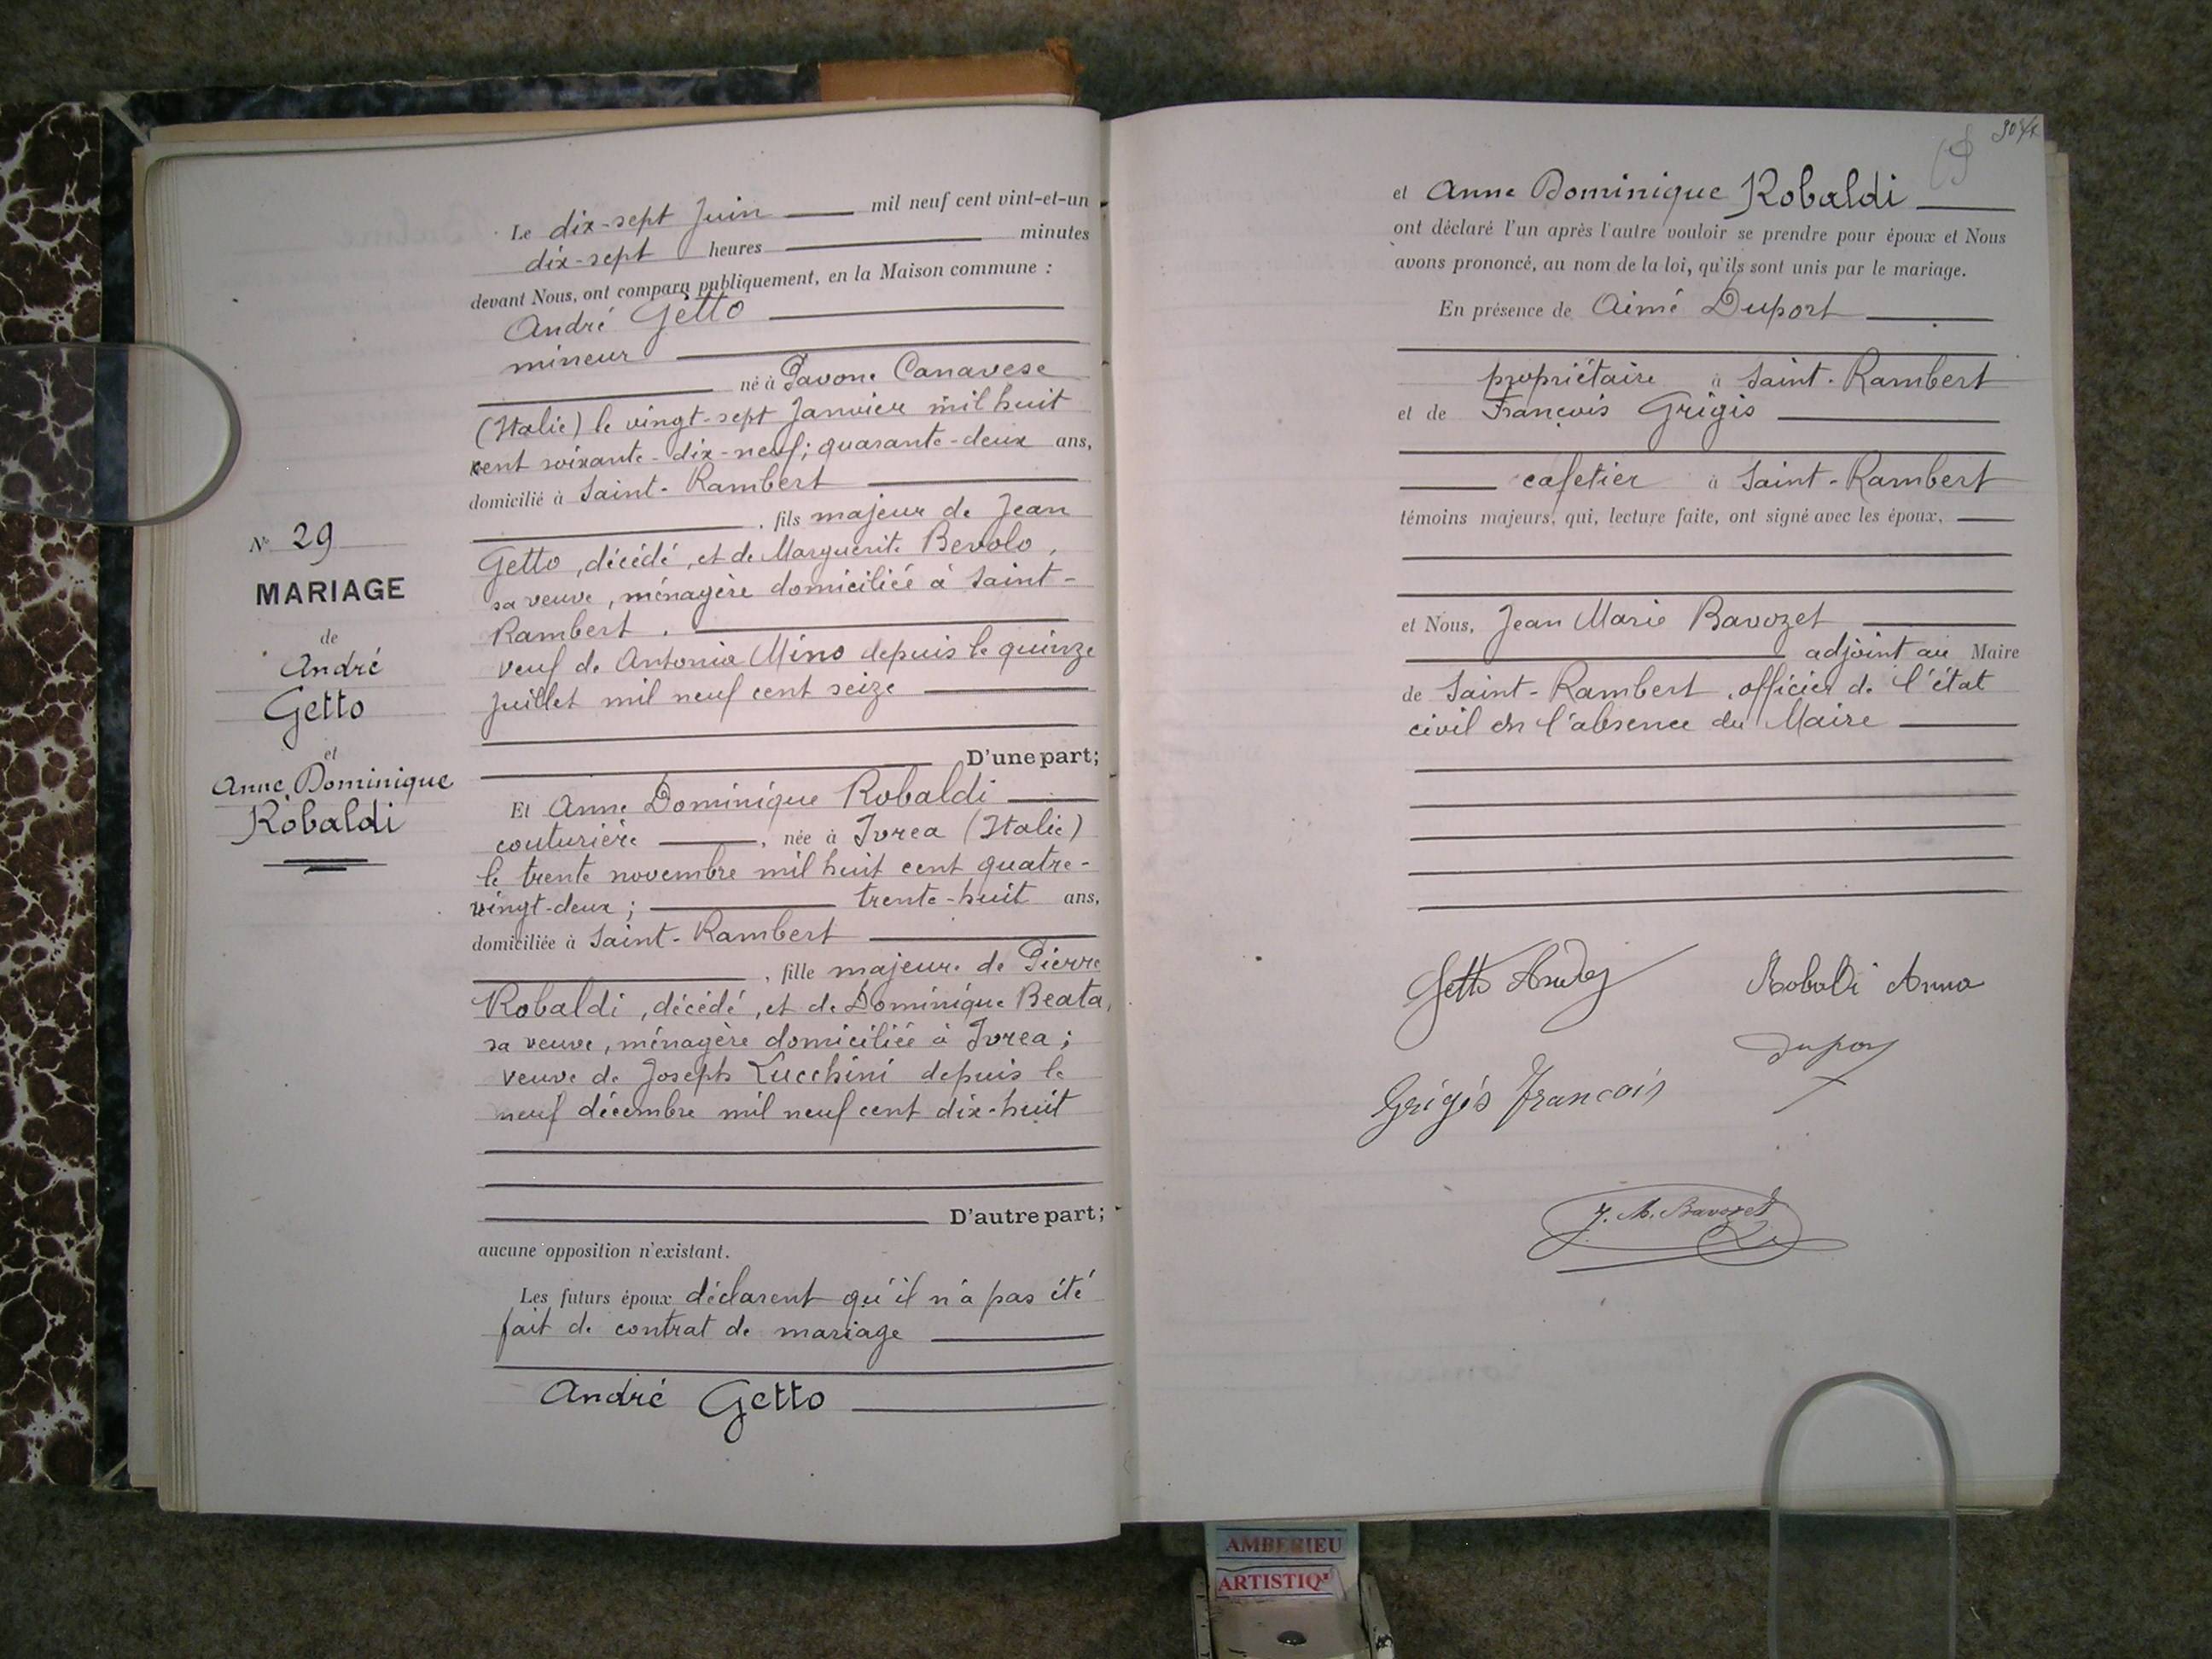 N° 29
MARIAGE
de
André
Getto
et
Anne Dominique
Robaldi
Le dix-sept Juin mil neuf cent vint-et-un
dix-sept heures minutes
devant Nous, ont comparu publiquement, en la Maison commune :
André Getto
mineur
né à Pavone Canavese
(Italie) le vingt-sept Janvier mil huit
cent soixante-dix-neuf; quarante-deux ans,
domicilié à Saint-Rambert
, fils majeur de Jean
Getto, décédé, et de Marguerite Bevolo,
sa veuve, ménagère domiciliée à Saint-
Rambert.
veuf de Antonia Mino depuis le quinze
Juillet mil neuf cent seize
D'une part;
Et Anne Dominique Robaldi
couturière, née à Ivrea (Italie)
le trente novembre mil huit cent quatre-
vingt-deux; trente-huit ans,
domiciliée à Saint-Rambert
, fille majeure de Pierre
Robaldi, décédé, et de Dominique Beata,
sa veuve, ménagère domiciliée à Ivrea;
veuve de Joseph Lucchini depuis le
neuf décembre mil neuf cent dix-huit
D'autre part;
aucune opposition n'existant.
Les futurs époux déclarent qu'il n'a pas été
fait de contrat de mariage
André Getto
et Anne Dominique Robaldi
ont déclaré l'un après l'autre vouloir se prendre pour époux et Nous
avons prononcé, au nom de la loi, qu'ils sont unis par le mariage.
En présence de Aimé Duport
propriétaire à Saint-Rambert
et de François Grigis
cafetier à Saint-Rambert
témoins majeurs, qui, lecture faite, ont signé avec les époux,
et Nous, Jean Marie Bavozet
adjoint au Maire
de Saint-Rambert, officier de l'état
civil en l'absence du Maire
Getto Robaldi Anna
Grigis Francois
J. M. Bavozet
AMBERIEU
ARTISTIQ